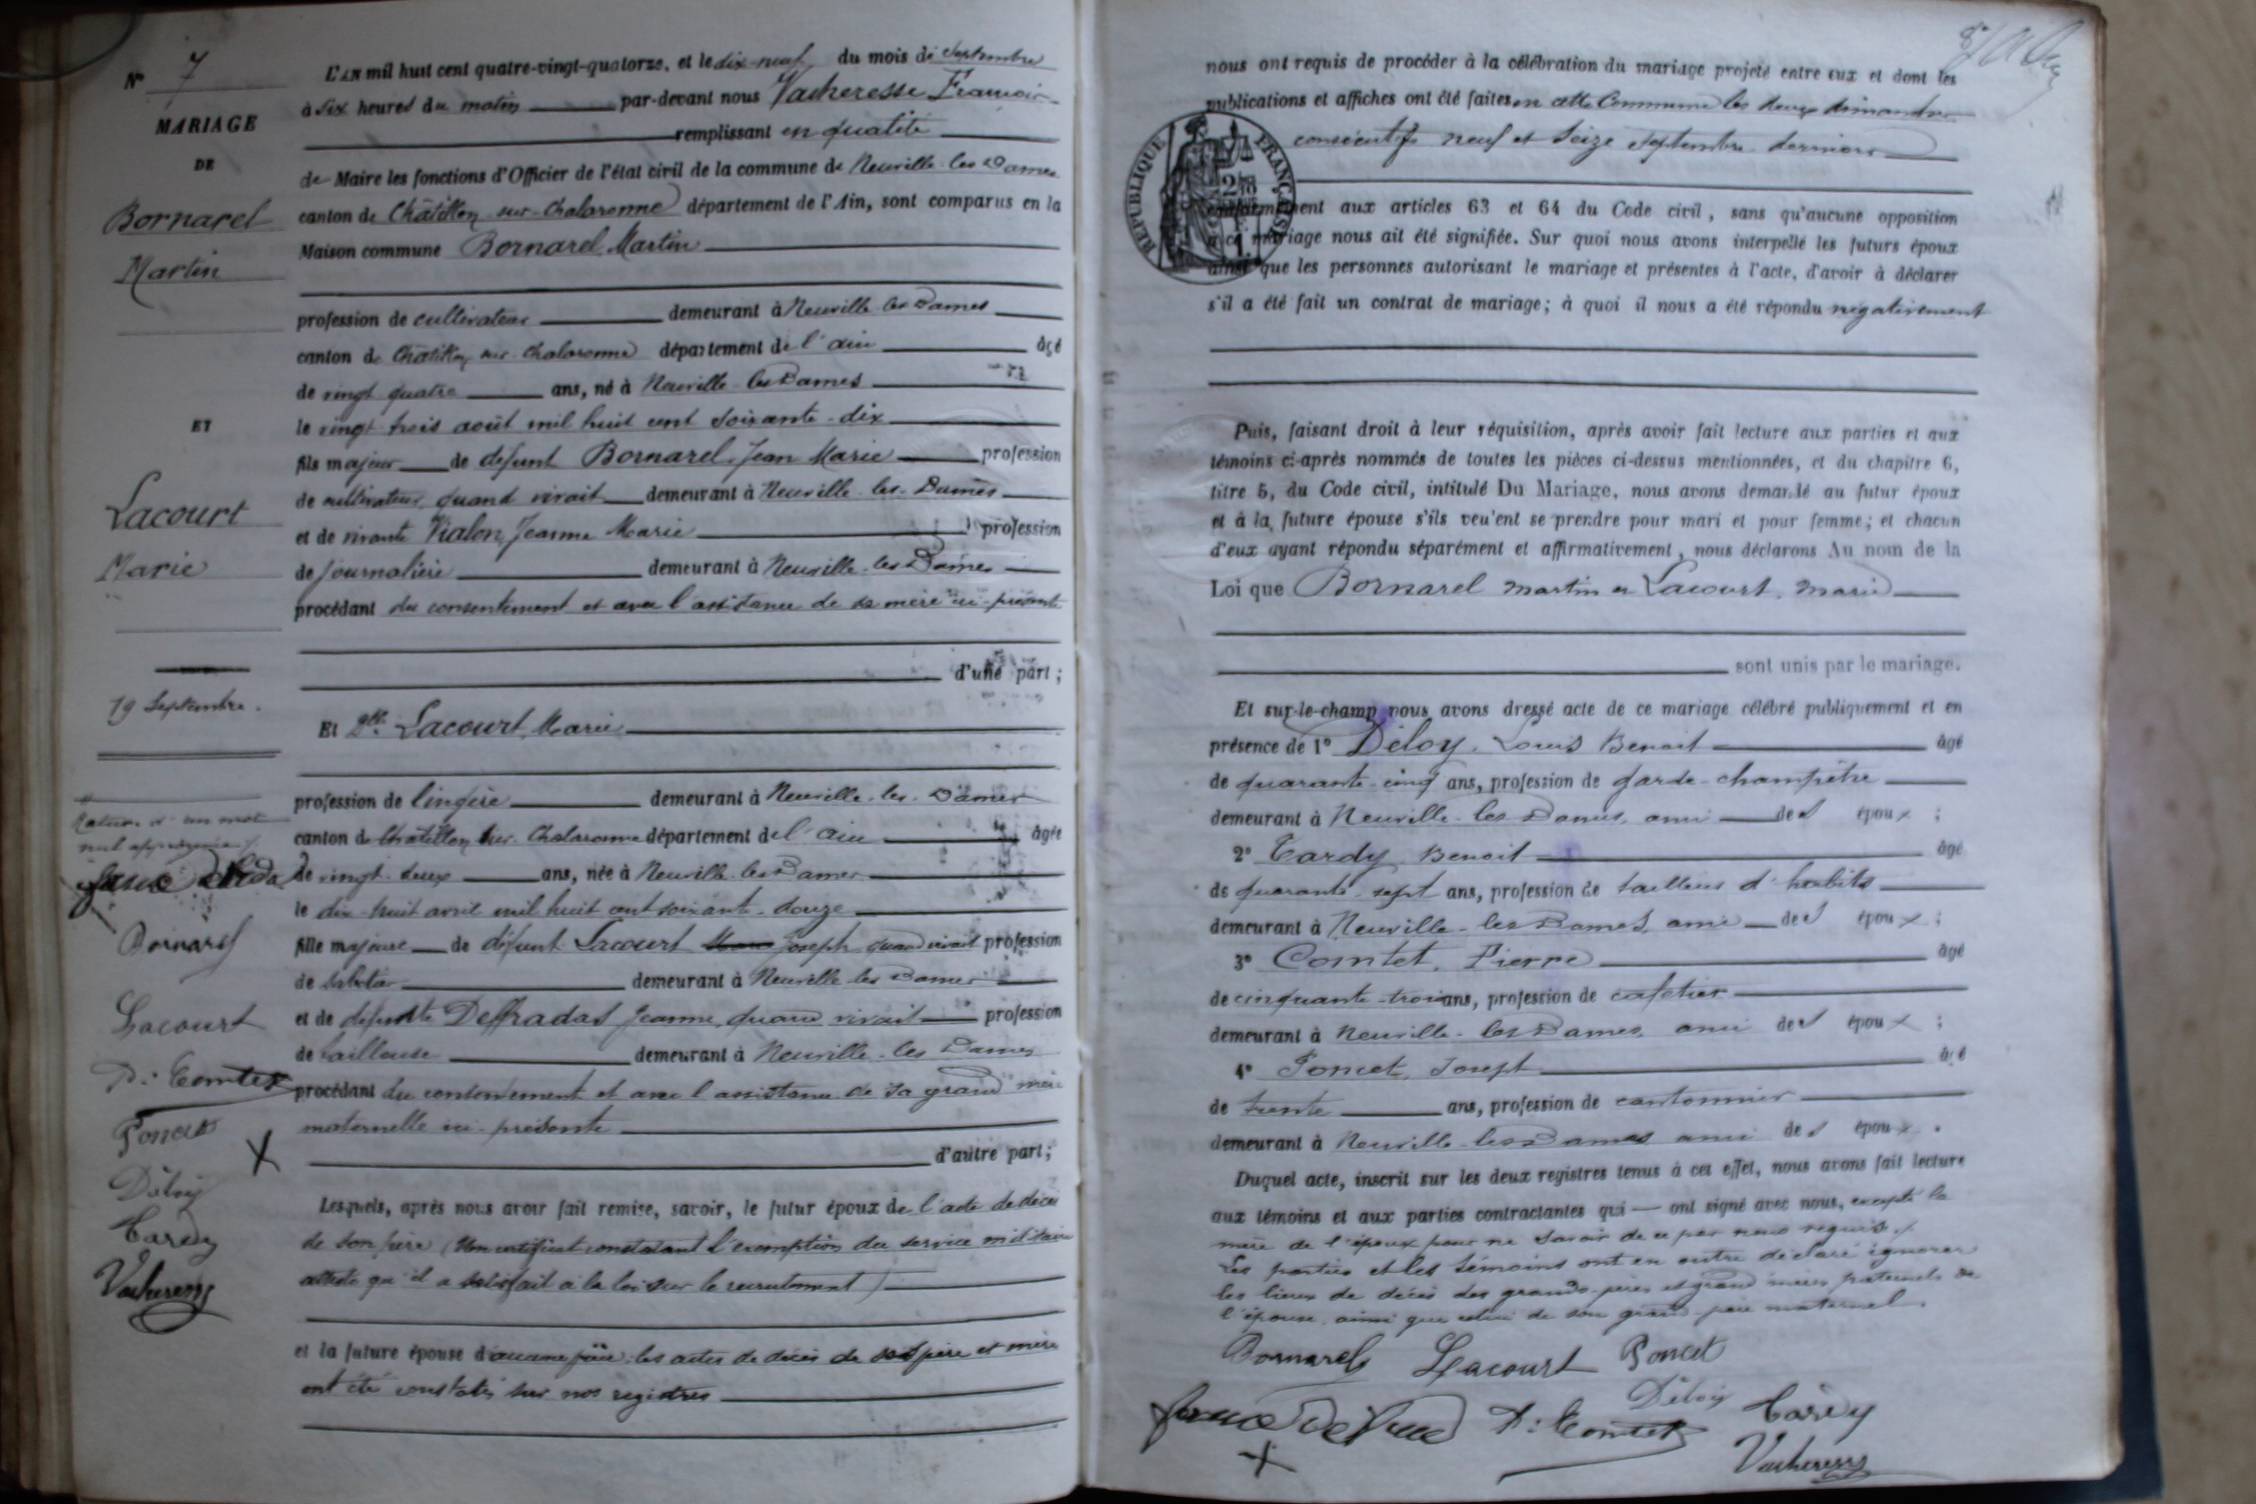 N° 7
MARIAGE
DE
Bornarel
Martin
ET
Lacourt
Marie
19 Septembre.
Rature d'un mot
nul approuvée
Bornarel
Lacourt
P: Comtet
Poncet
Déloy
Tardy
Vacheresse
L'AN mil huit cent quatre-vingt-quatorze, et le dix-neuf du mois de Septembre
à six heures du matin par-devant nous Vacheresse François
remplissant en qualité
de Maire les fonctions d'Officier de l'état civil de la commune de Neuville-les-Dames
canton de Châtillon-sur-Chalaronne département de l'Ain, sont comparus en la
Maison commune Bornarel Martin
profession de cultivateur demeurant à Neuville-les-Dames
canton de Châtillon-sur-Chalaronne département de l'ain âgé
de vingt quatre ans, né à Neuville-les-Dames
le vingt trois août mil huit cent soixante-dix
fils majeur de défunt Bornarel, Jean Marie profession
de cultivateur, quand vivait demeurant à Neuville-les-Dames
et de vivante Vialon, Jeanne Marie profession
de journalière demeurant à Neuville-les-Dames
procédant du consentement et avec l'assistance de sa mère ici-présente
d'une part;
Et Dlle Lacourt, Marie
profession de lingère demeurant à Neuville-les-Dames
canton de Châtillon-sur-Chalaronne département de l'ain âgée
de vingt-deux ans, née à Neuville-les-Dames
le dix-huit avril mil huit cent soixante-douze
fille majeure de défunt Lacourt Joseph quand vivait profession
de sabotier demeurant à Neuville-les-Dames
et de défunte Deffradas Jeanne, quand vivait profession
de tailleuse demeurant à Neuville-les-Dames
procédant du consentement et avec l'assistance de sa grand'mère
maternelle ici-présente
d'autre part;
Lesquels, après nous avoir fait remise, savoir, le futur époux de l'acte de décès
de son père (Un certificat constatant l'exemption du service militaire
atteste qu'il a satisfait à la loi sur le recrutement)
et la future épouse d'aucune pièce: les actes de décès de ses père et mère
ont été constatés sur nos registres
nous ont requis de procéder à la célébration du mariage projeté entre eux et dont les
publications et affiches ont été faites en cette Commune les deux dimanches
consécutifs neuf et seize septembre derniers
RÉPUBLIQUE FRANÇAISE
conformément aux articles 63 et 64 du Code civil, sans qu'aucune opposition
à ce mariage nous ait été signifiée. Sur quoi nous avons interpellé les futurs époux
ainsi que les personnes autorisant le mariage et présentes à l'acte, d'avoir à déclarer
s'il a été fait un contrat de mariage; à quoi il nous a été répondu négativement
Puis, faisant droit à leur réquisition, après avoir fait lecture aux parties et aux
témoins ci-après nommés de toutes les pièces ci-dessus mentionnées, et du chapitre 6,
titre 5, du Code civil, intitulé Du Mariage, nous avons demandé au futur époux
et à la future épouse s'ils veulent se prendre pour mari et pour femme; et chacun
d'eux ayant répondu séparément et affirmativement, nous déclarons Au nom de la
Loi que Bornarel Martin et Lacourt, Marie
sont unis par le mariage.
Et sur-le-champ nous avons dressé acte de ce mariage célébré publiquement et en
présence de 1° Déloy, Louis Benoit âgé
de quarante-cinq ans, profession de garde-champêtre
demeurant à Neuville-les-Dames, ami des époux;
2° Tardy, Benoit âgé
de quarante-sept ans, profession de tailleur d'habits
demeurant à Neuville-les-Dames, ami des époux;
3° Comtet, Pierre âgé
de cinquante-trois ans, profession de cafetier
demeurant à Neuville-les-Dames, ami des époux;
4° Poncet, Joseph âgé
de trente ans, profession de cantonnier
demeurant à Neuville-les-Dames ami des époux.
Duquel acte, inscrit sur les deux registres tenus à cet effet, nous avons fait lecture
aux témoins et aux parties contractantes qui ont signé avec nous, excepté la
mère de l'époux pour ne savoir de ce par nous requis.
Les parties et les témoins ont en outre déclaré ignorer
les lieux de décès des grands-pères et grand'mères paternels de
l'épouse, ainsi que celui de son grand-père maternel.
Bornarel Lacourt Poncet
Déloy Tardy
P: Comtet
Vacheresse